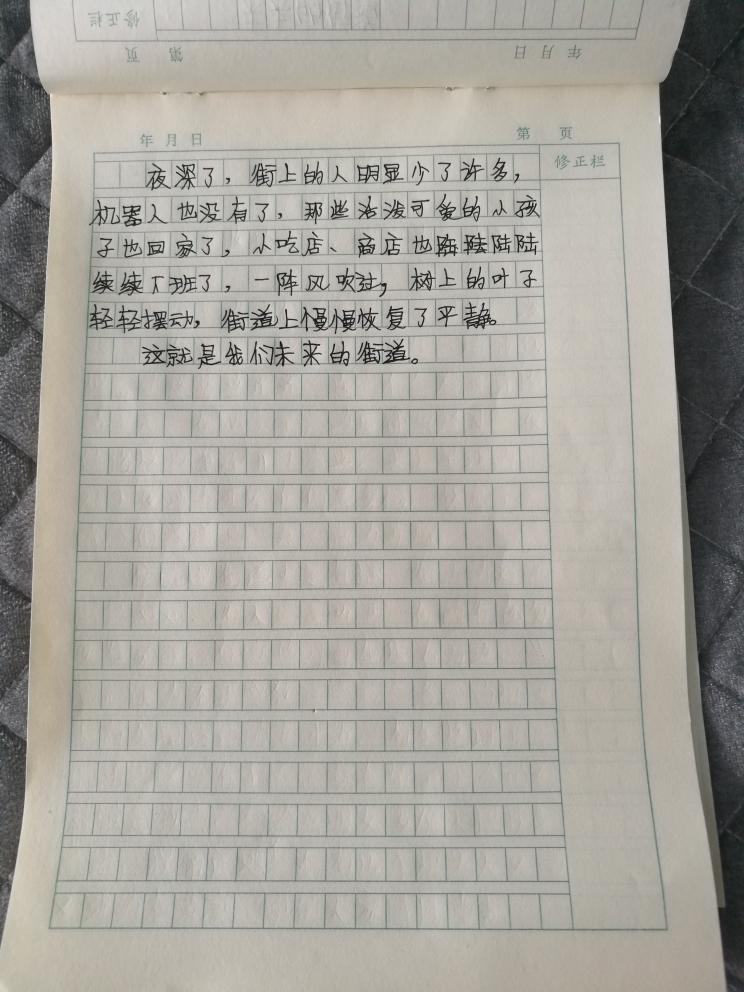 修正栏
第 页
年 月 日
年 月 日
第 页
修正栏
夜深了，街上的人明显少了许多，
机器人也没有了，那些活泼可爱的小孩
子也回家了，小吃店、商店也陆陆陆陆
续续下班了，一阵风吹过，树上的叶子
轻轻摆动，街道上慢慢恢复了平静。
这就是我们未来的街道。